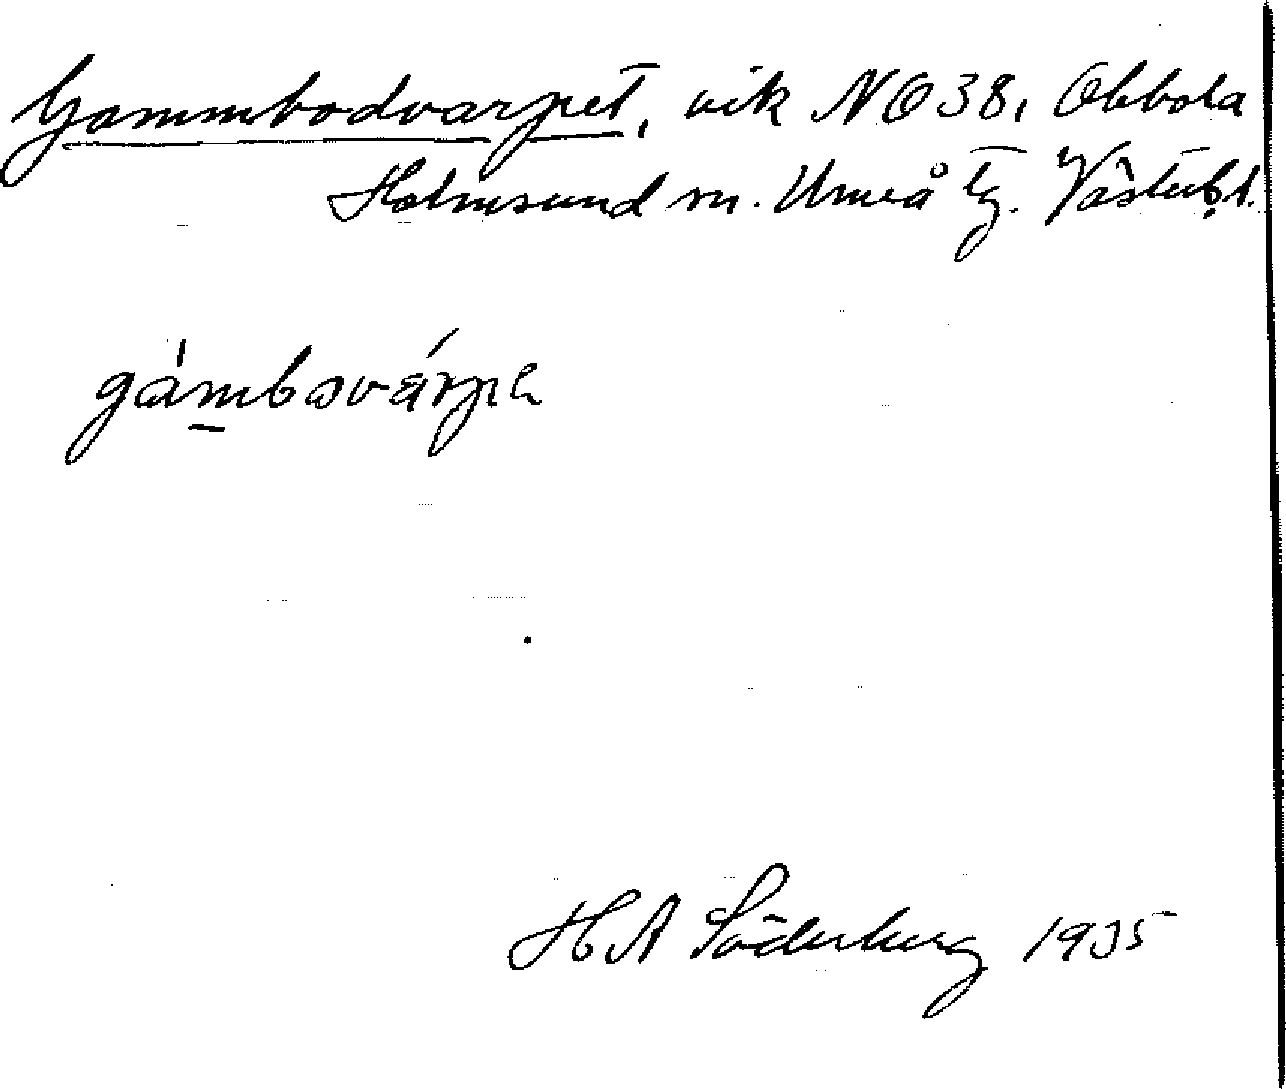 Gammbodvarpet, vik NO 38, Obbola
Holmsund sn. Umeå tg. Västerb. l.
gámbovárpe
HA Söderberg 1935